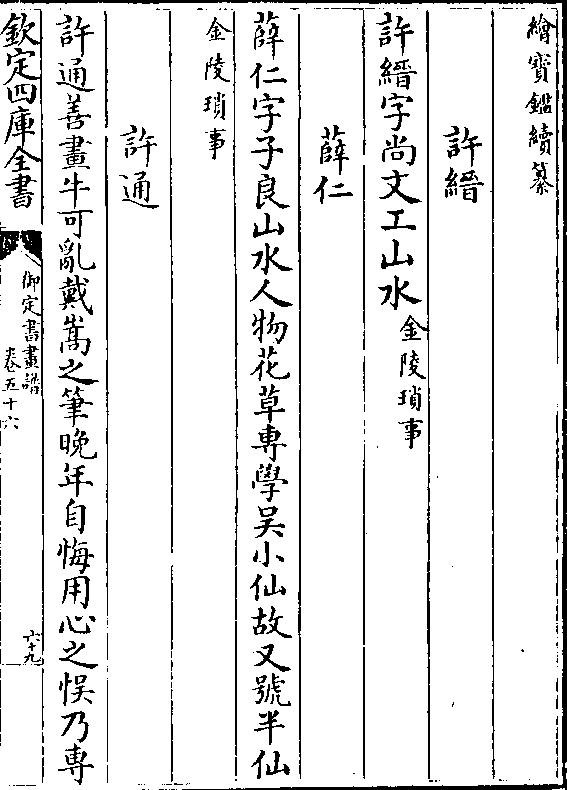 繪寳鑑續纂
許縉
許縉字尚文工山水金陵瑣事
薛仁
薛仁字子良山水人物花草専學吴小仙故又號半仙
金陵瑣事
許通
許通善畫牛可亂戴嵩之筆晚年自悔用心之悞乃専
欽定四庫全書
御定書畫譜
卷五十六
六十九